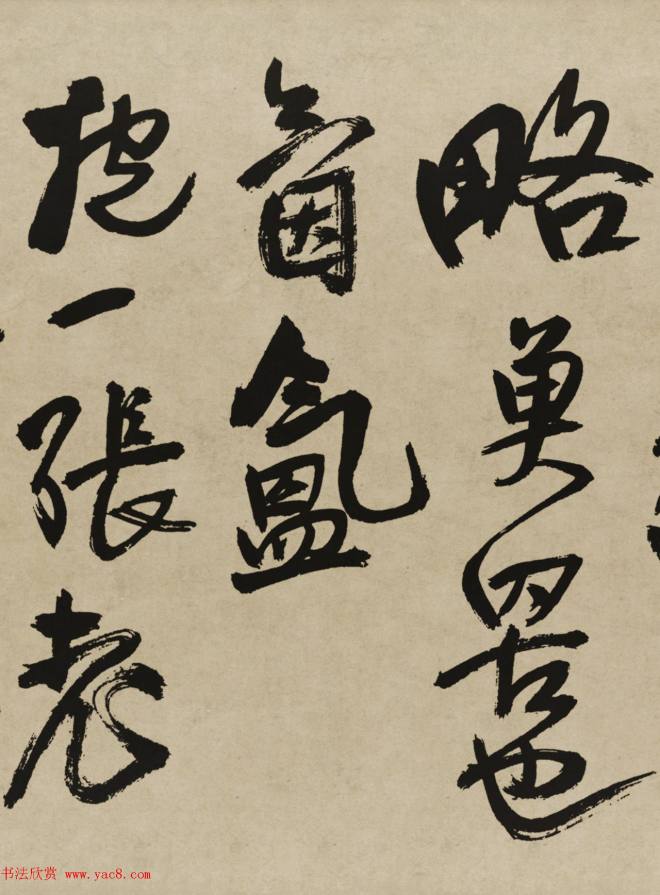 略罟也
氤氳
抱一張老
书法欣赏 www.yac8.com